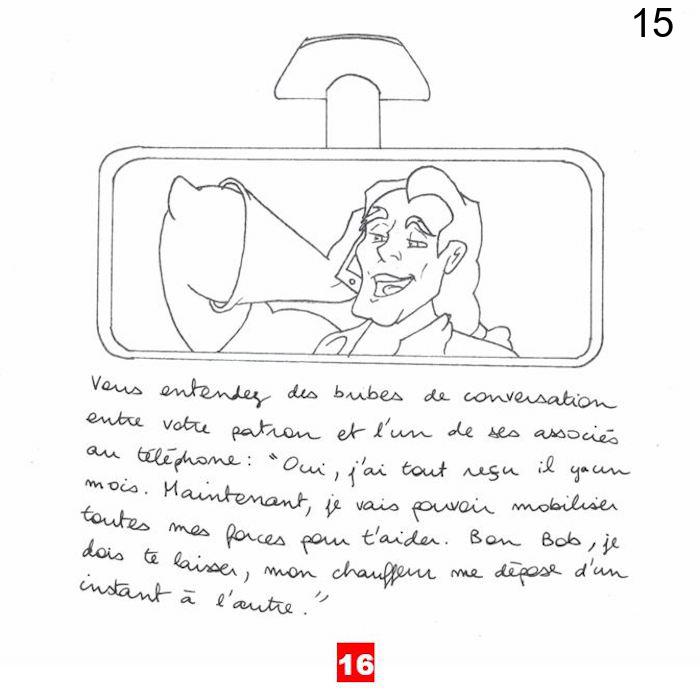 15
Vous entendez des bribes de conversation
entre votre patron et l'un de ses associés
au téléphone : "Oui, j'ai tout reçu il y a un
mois. Maintenant, je vais pouvoir mobiliser
toutes mes forces pour t'aider. Bon Bob, je
dois te laisser, mon chauffeur me dépose d'un
instant à l'autre."
16